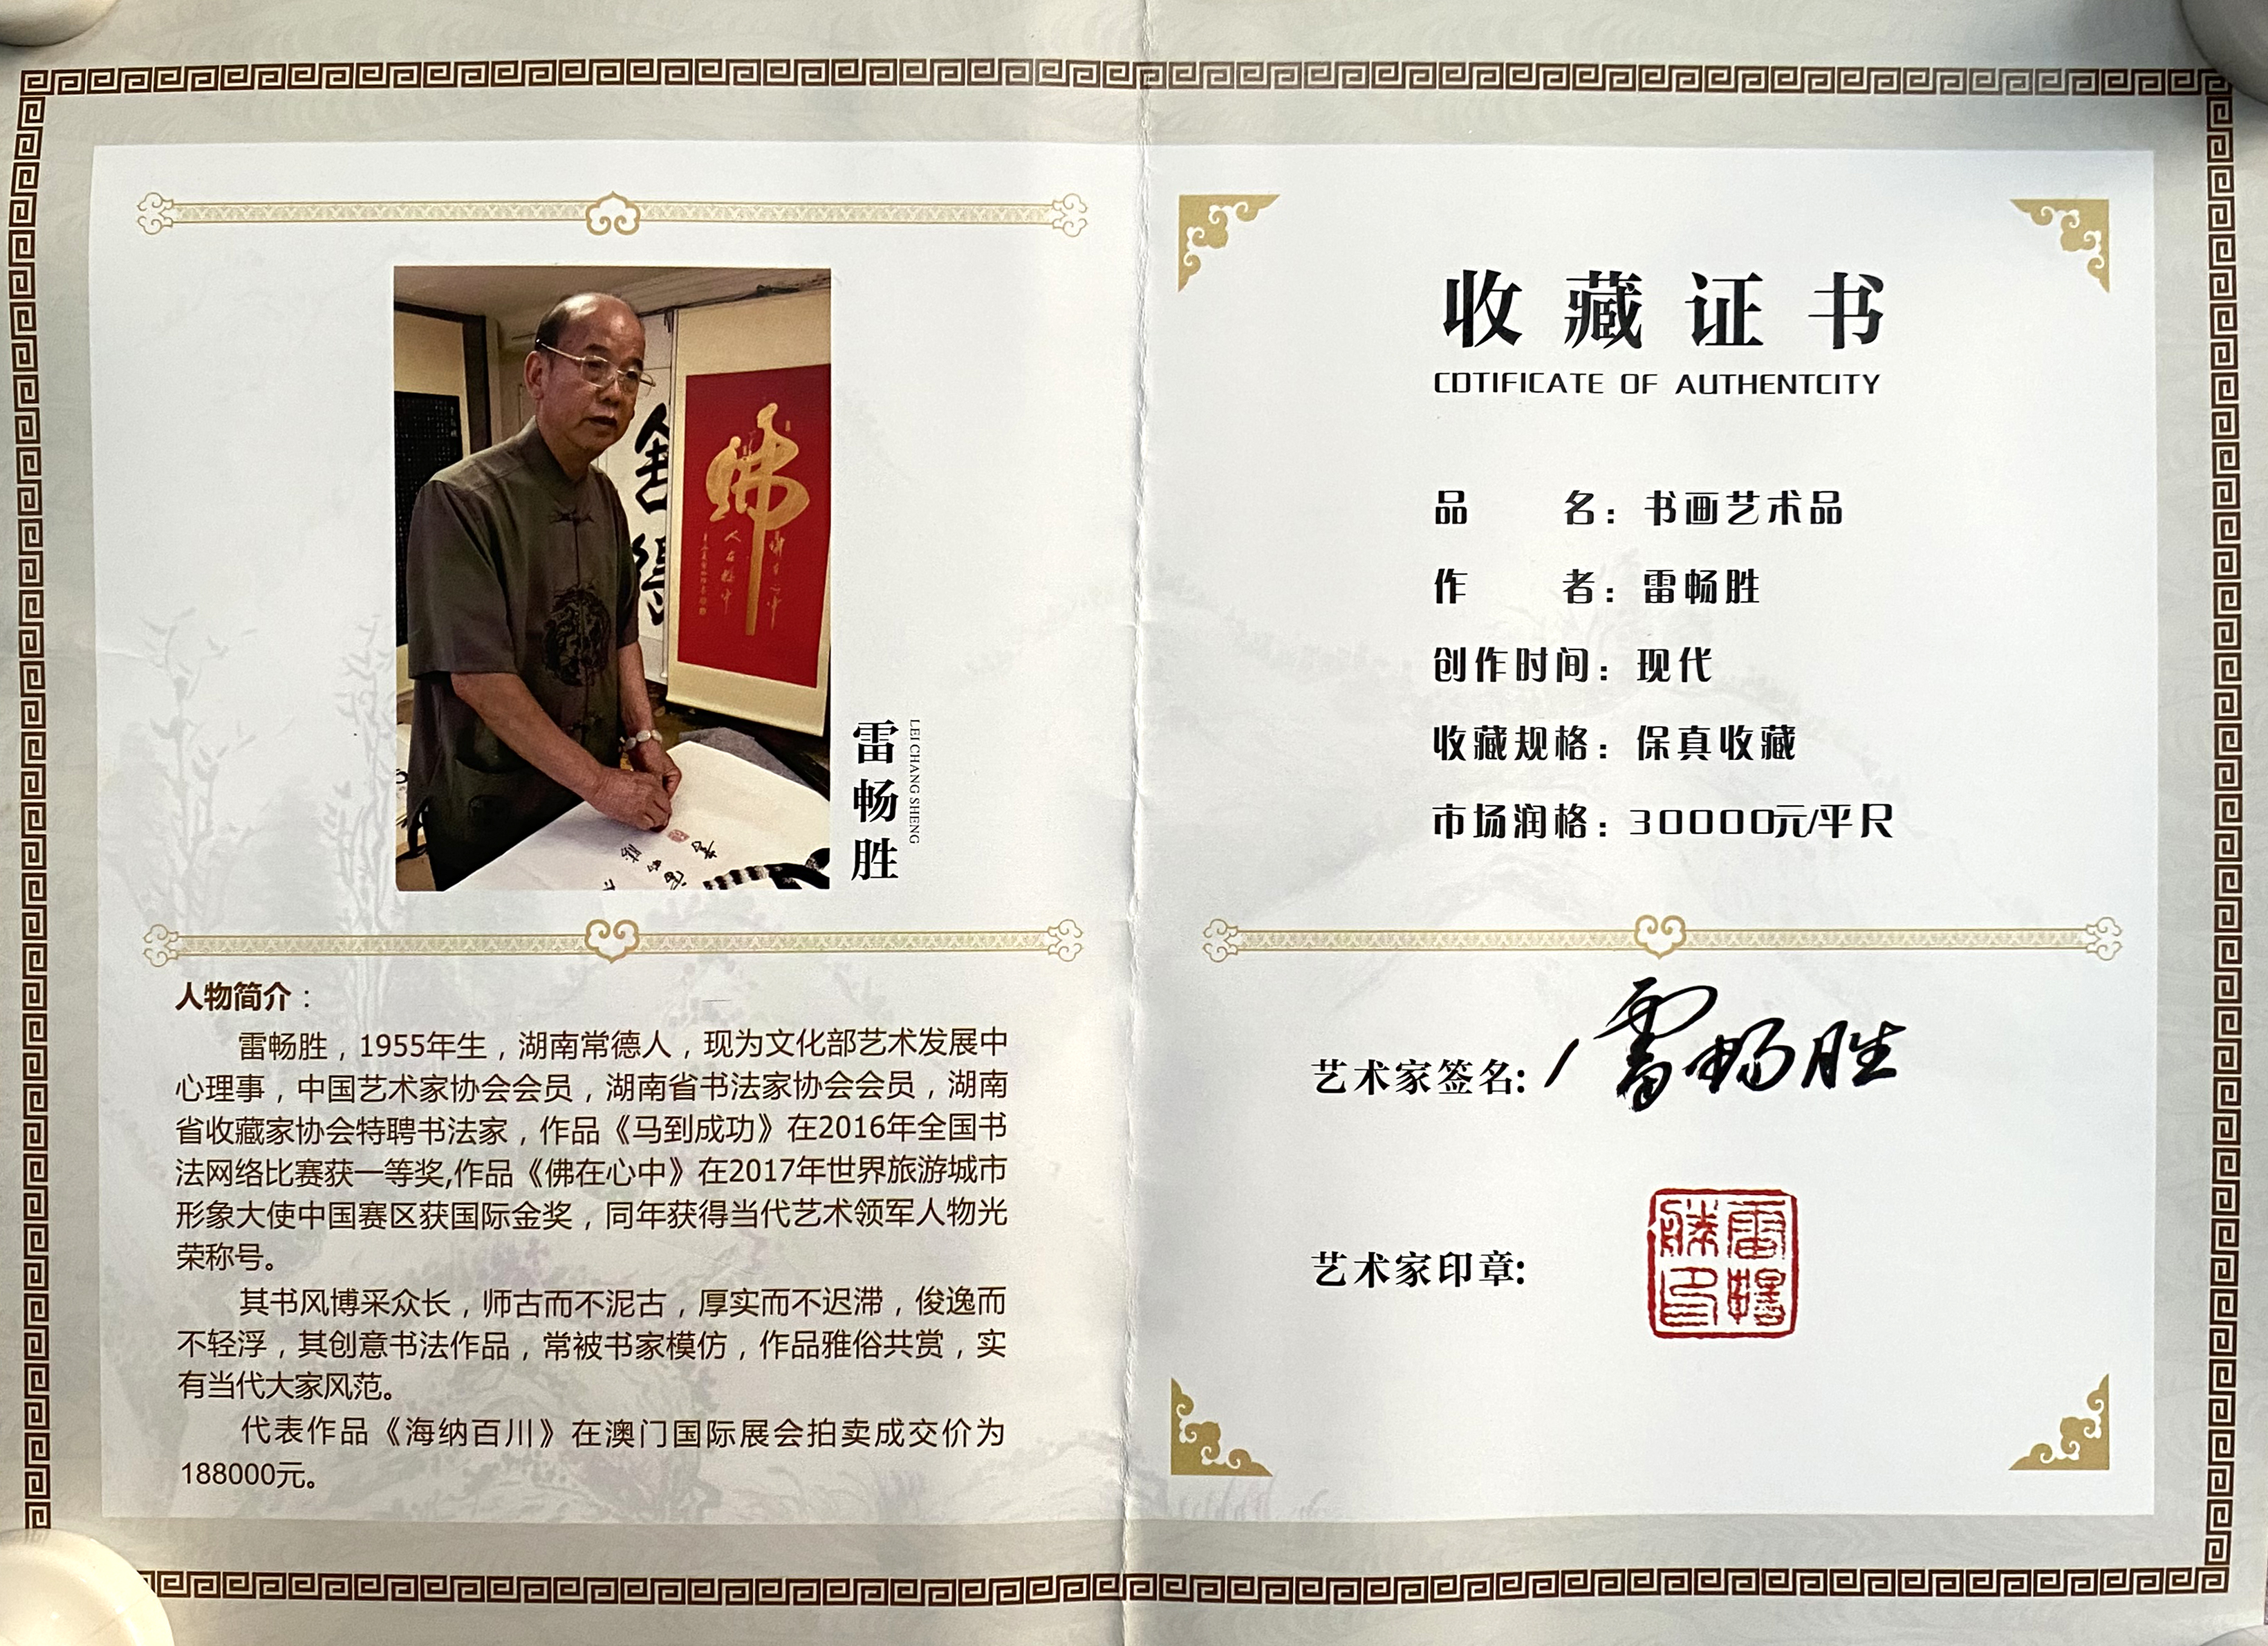 佛
雷畅胜
LEI CHANG SHENG
人物简介：
雷畅胜，1955年生，湖南常德人，现为文化部艺术发展中
心理事，中国艺术家协会会员，湖南省书法家协会会员，湖南
省收藏家协会特聘书法家，作品《马到成功》在2016年全国书
法网络比赛获一等奖,作品《佛在心中》在2017年世界旅游城市
形象大使中国赛区获国际金奖，同年获得当代艺术领军人物光
荣称号。
其书风博采众长，师古而不泥古，厚实而不迟滞，俊逸而
不轻浮，其创意书法作品，常被书家模仿，作品雅俗共赏，实
有当代大家风范。
代表作品《海纳百川》在澳门国际展会拍卖成交价为
188000元。
收藏证书
COTIFICATE OF AUTHENTCITY
品 名：书画艺术品
作 者：雷畅胜
创作时间：现代
收藏规格：保真收藏
市场润格：30000元/平尺
艺术家签名: 雷畅胜
艺术家印章:
雷暢
勝印